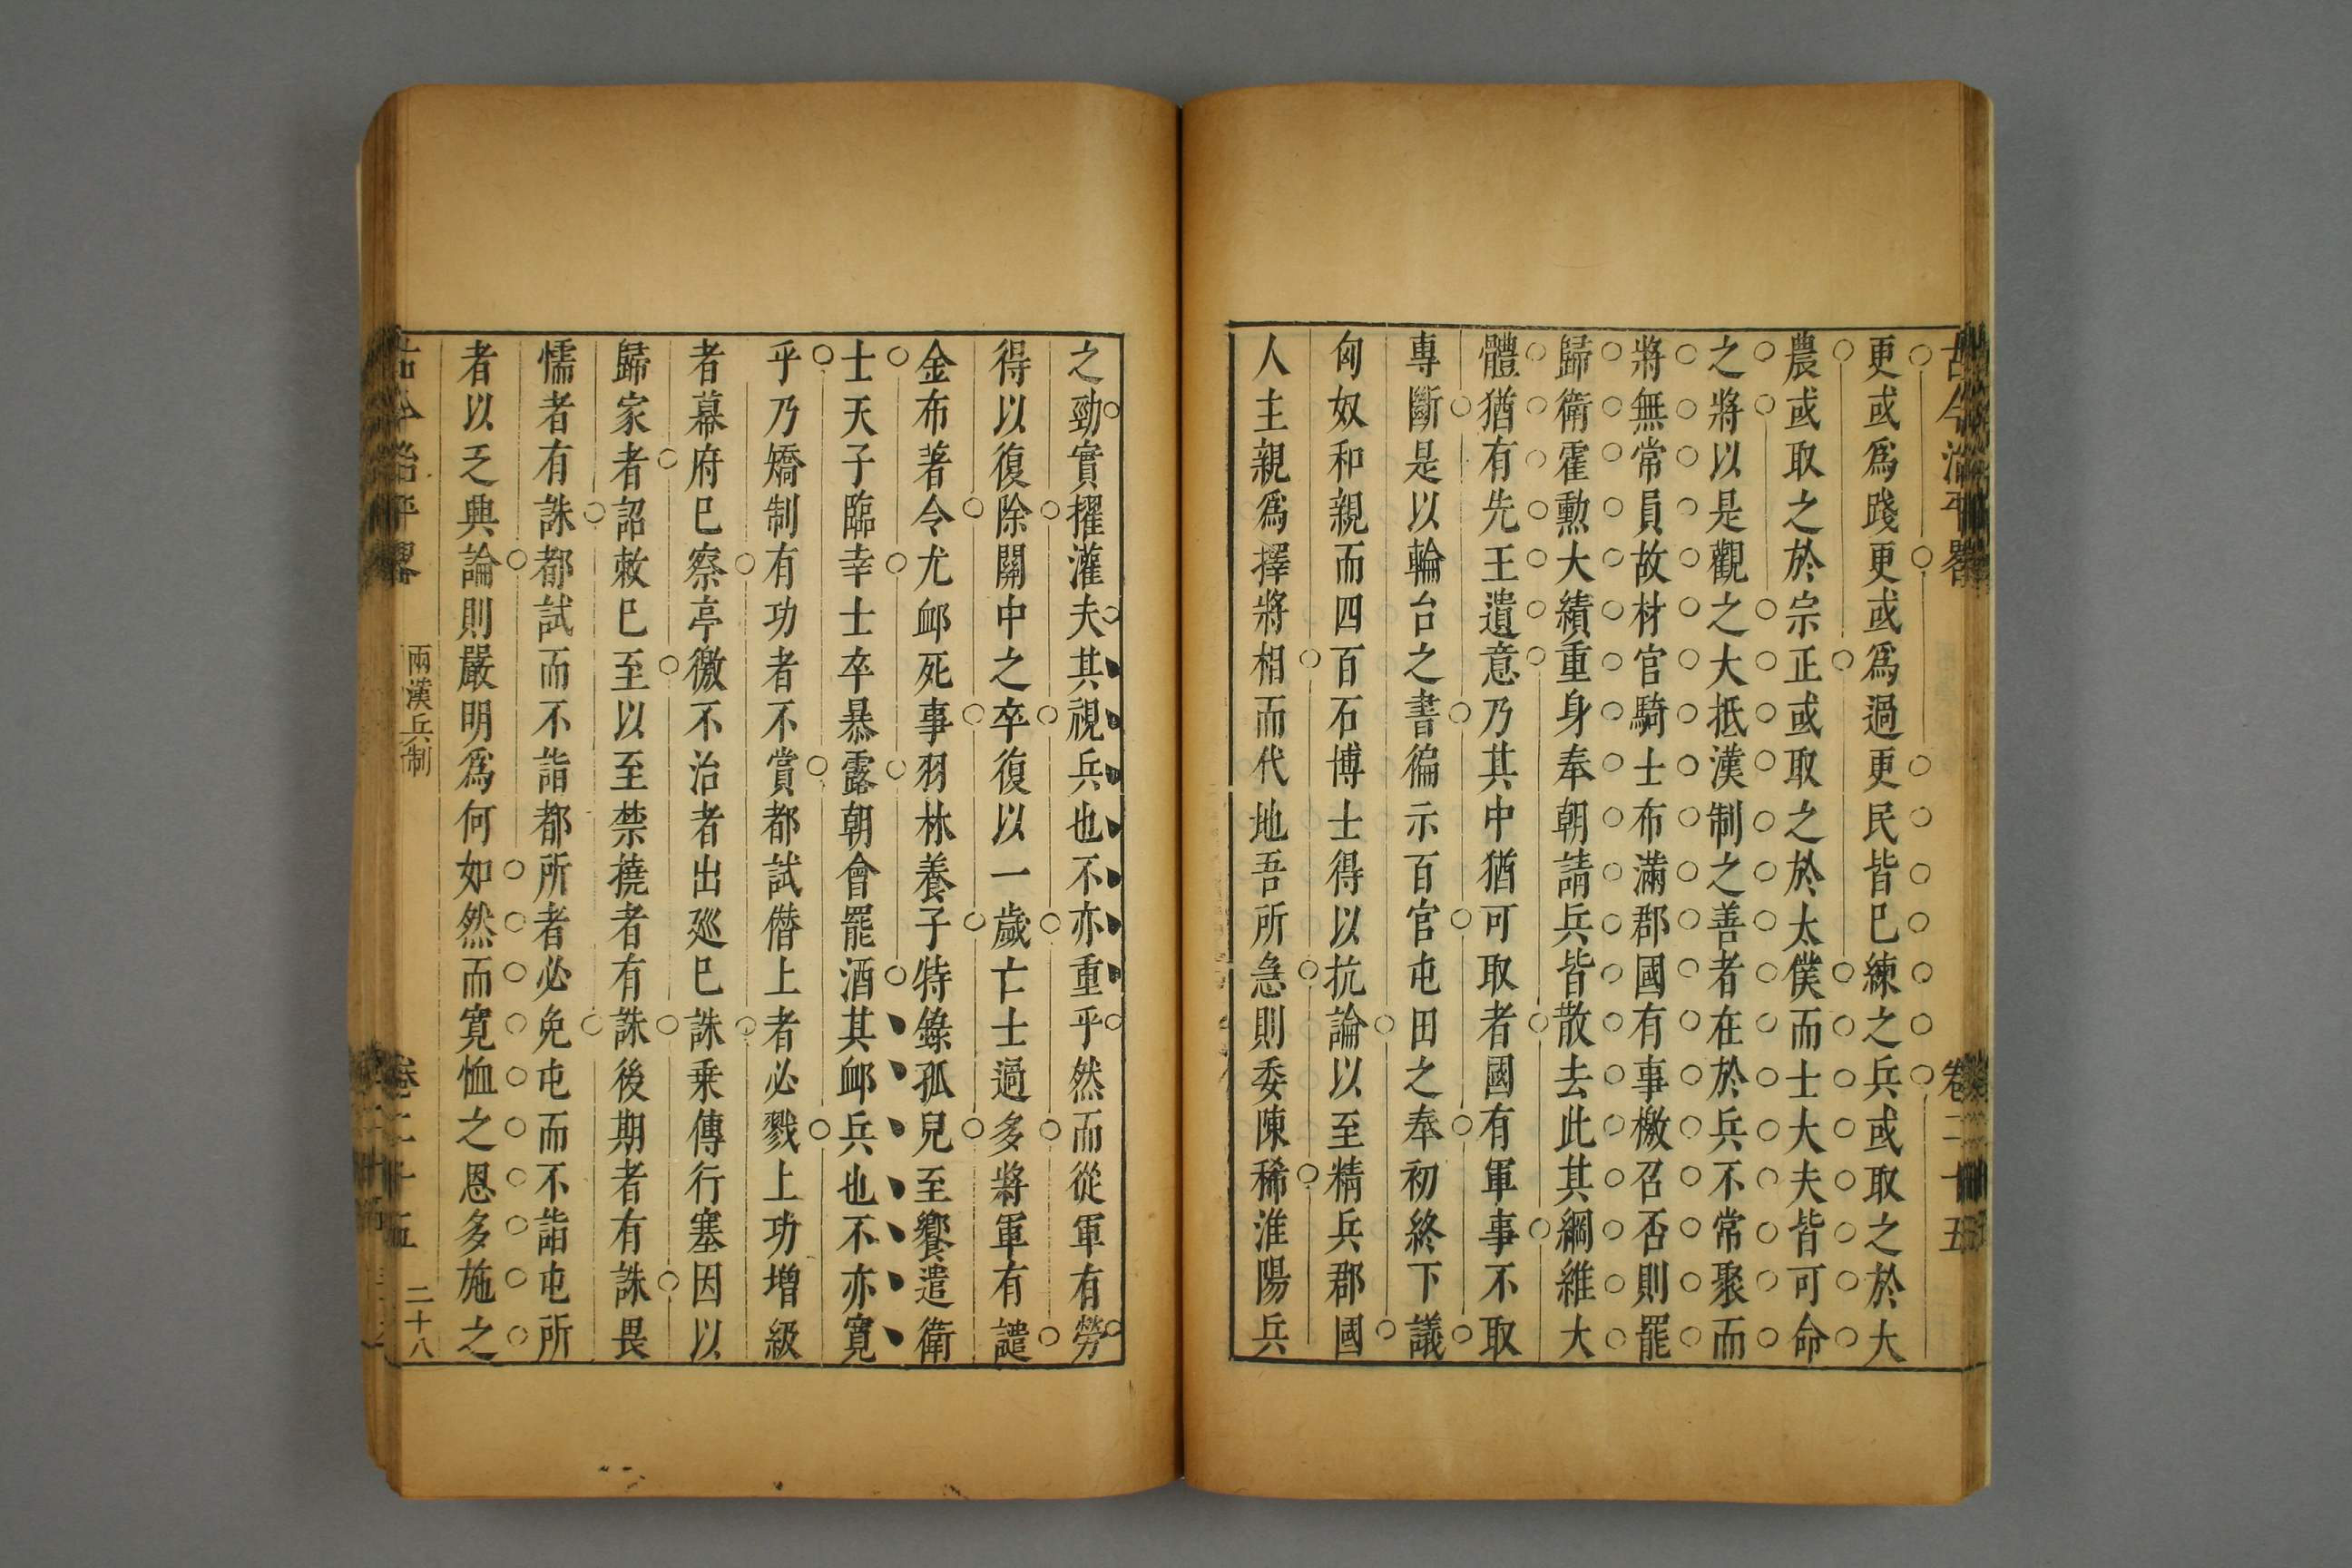 古今治平畧 卷二十五
更或爲踐更或爲過更民皆已練之兵或取之於大
農或取之於宗正或取之於太僕而士大夫皆可命
之將以是觀之大抵漢制之善者在於兵不常聚而
將無常員故材官騎士布滿郡國有事檄召否則罷
歸衛霍勳大績重身奉朝請兵皆散去此其綱維大
體猶有先王遺意乃其中猶可取者國有軍事不取
專斷是以輪台之書徧示百官屯田之奉初終下議
匈奴和親而四百石博士得以抗論以至精兵郡國
人主親爲擇將相而代地吾所急則委陳稀淮陽兵
之勁實擢灌夫其視兵也不亦重乎然而從軍有勞
得以復除關中之卒復以一歲亡士過多將軍有譴
金布著令尤卹死事羽林養子特錄孤兒至饗遣衛
士天子臨幸士卒暴露朝會罷酒其卹兵也不亦寬
乎乃矯制有功者不賞都試僭上者必戮上功增級
者幕府已察亭徼不治者出廵已誅乗傳行塞因以
歸家者詔敕已至以至禁撓者有誅後期者有誅畏
懦者有誅都試而不詣都所者必免屯而不詣屯所
者以乏興論則嚴明爲何如然而寬恤之恩多施之
古今治平畧 兩漢兵制 卷二十五 二十八